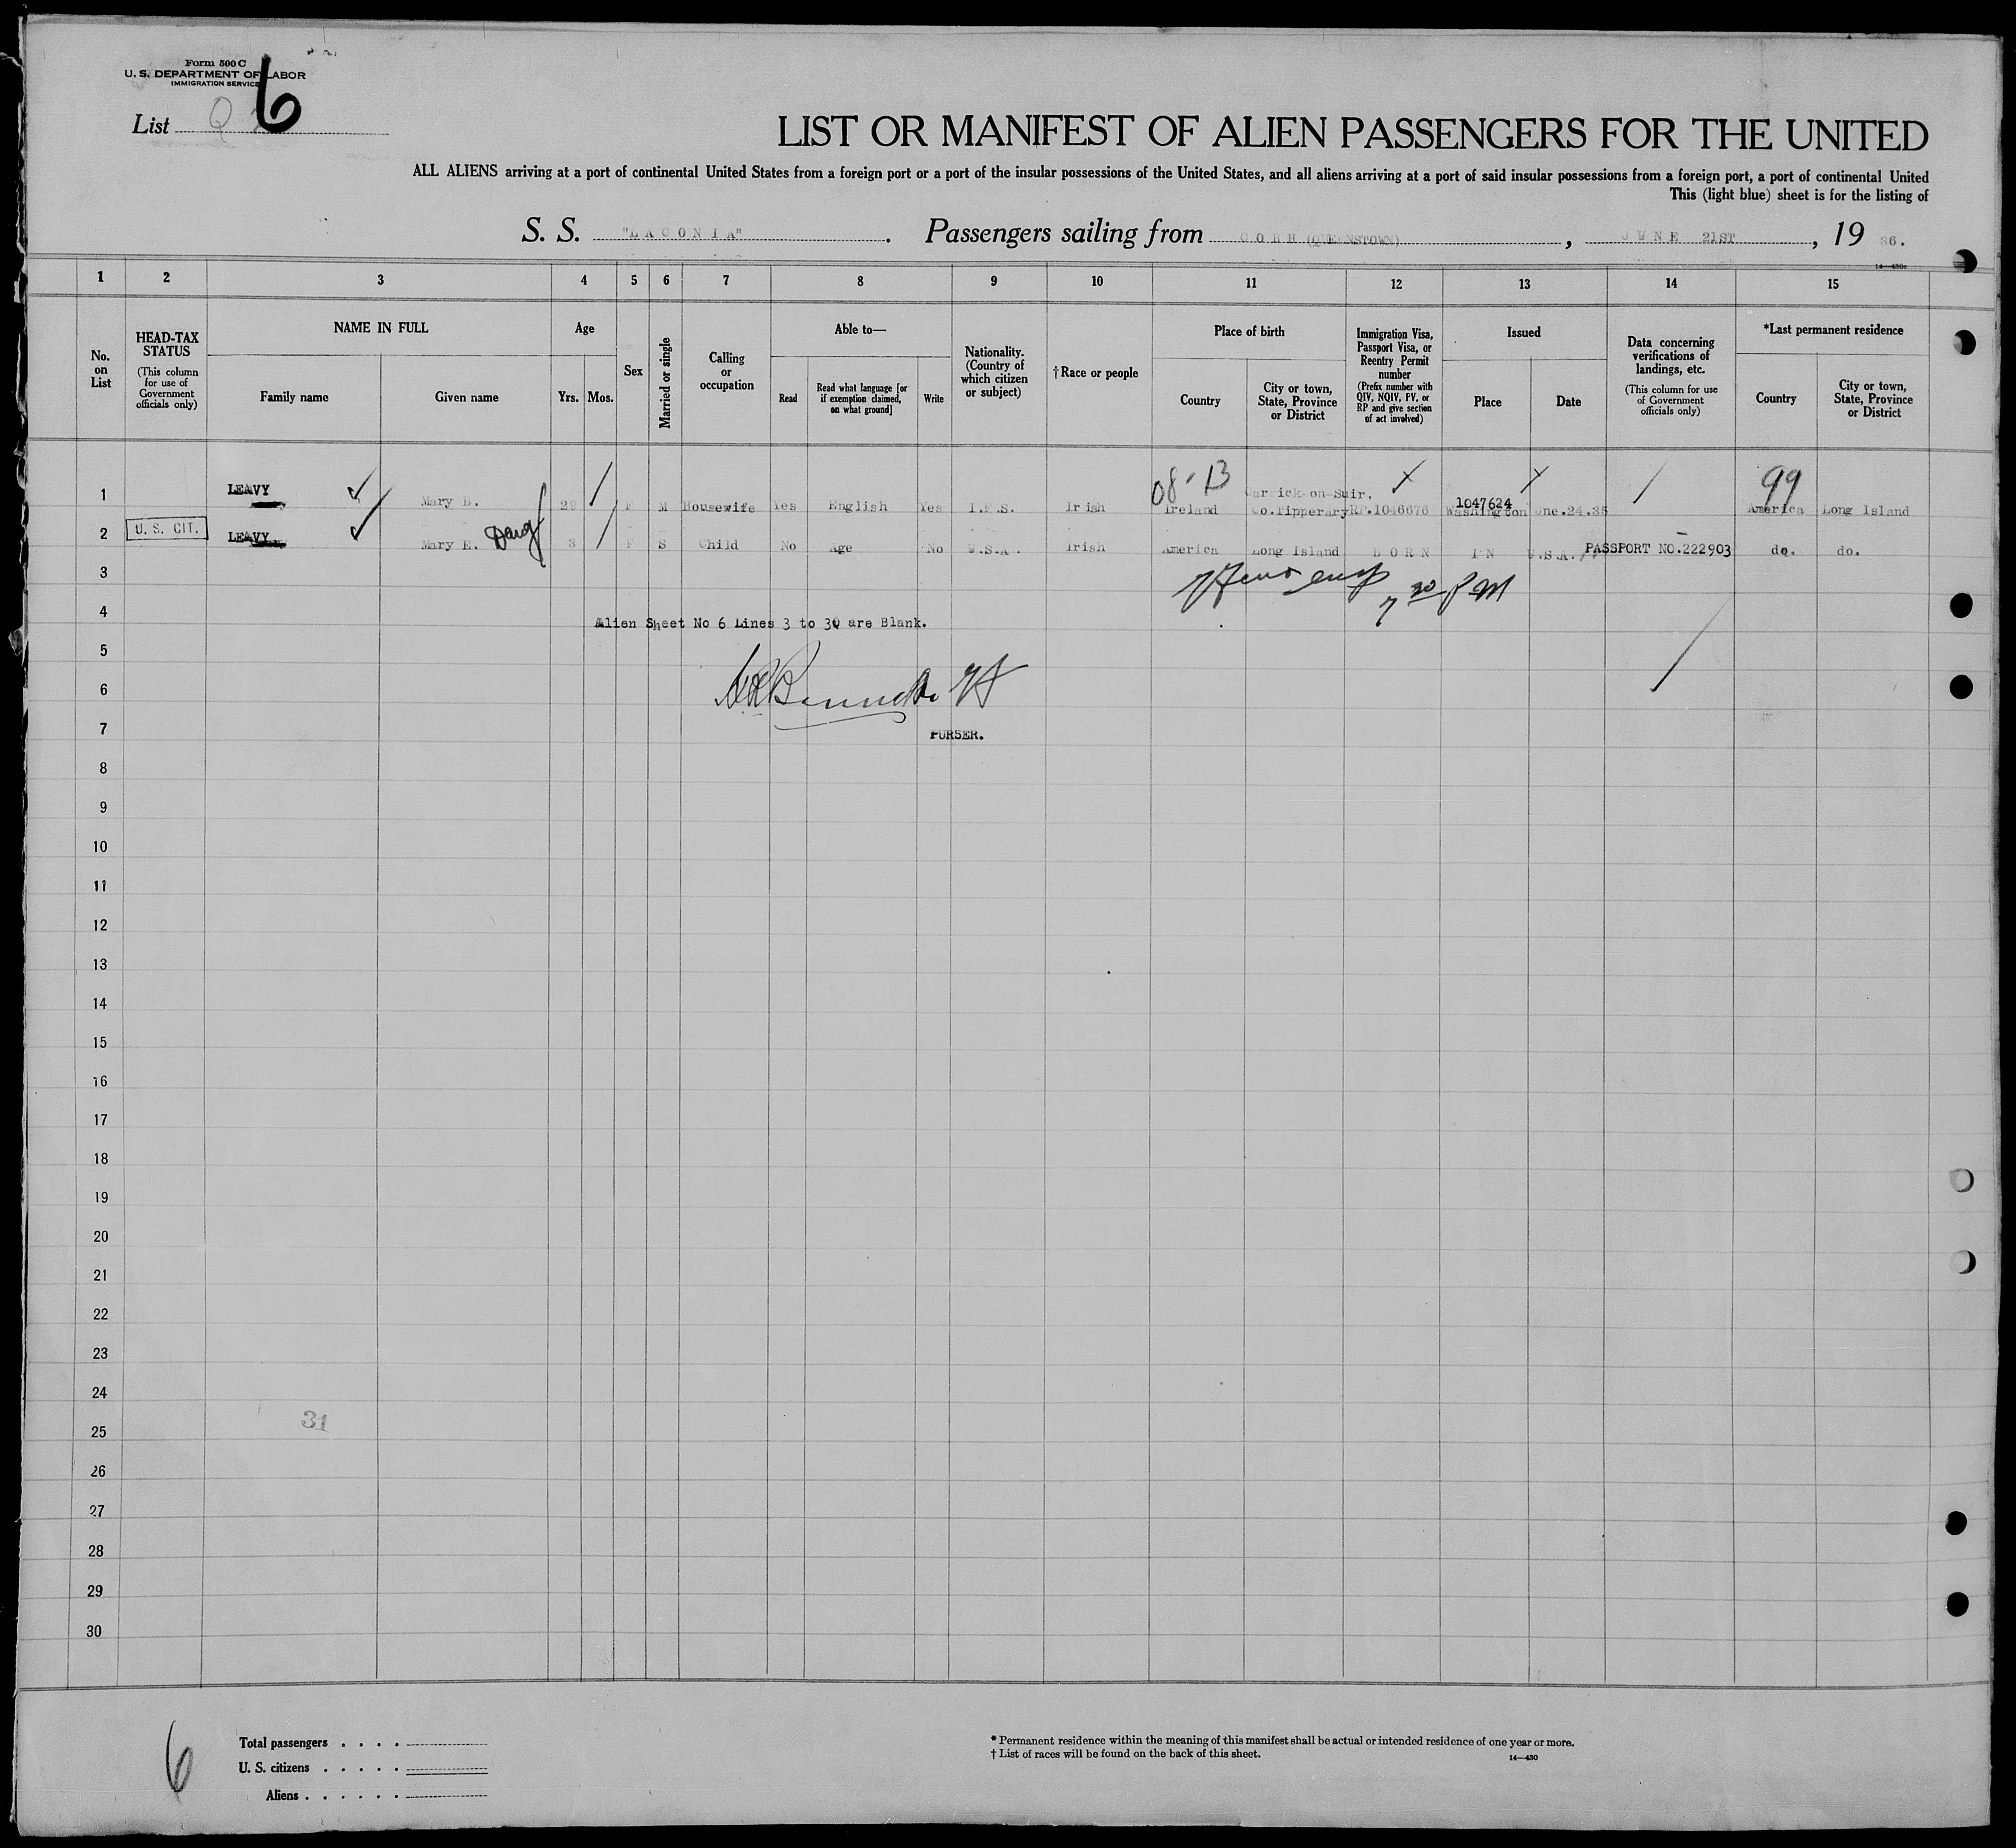 Form 500 C
U. S. DEPARTMENT OF LABOR
IMMIGRATION SERVICE
List 6
LIST OR MANIFEST OF ALIEN PASSENGERS FOR THE UNITED
ALL ALIENS arriving at a port of continental United States from a foreign port or a port of the insular possessions of the United States, and all aliens arriving at a port of said insular possessions from a foreign port, a port of continental United
This (light blue) sheet is for the listing of
S. S. "LACONIA". Passengers sailing from COBH (QUEENSTOWN), JUNE 21ST, 19 36.
14—430
1 2 3 4 5 6 7 8 9 10 11 12 13 14 15
No. on List
HEAD-TAX STATUS
(This column for use of Government officials only)
NAME IN FULL
Family name
Given name
Age
Yrs.
Mos.
Sex
Married or single
Calling or occupation
Able to—
Read
Read what language [or if exemption claimed, on what ground]
Write
Nationality. (Country of which citizen or subject)
†Race or people
Place of birth
Country
City or town, State, Province or District
Immigration Visa, Passport Visa, or Reentry Permit number
(Prefix number with QIV, NQIV, PV, or RP and give section of act involved)
Issued
Place
Date
Data concerning verifications of landings, etc.
(This column for use of Government officials only)
*Last permanent residence
Country
City or town, State, Province or District
08-13 99
1 LEAVY Mary B. 29 F M Housewife Yes English Yes I.F.S. Irish Ireland Carrick-on-Suir, Co.Tipperary RP.1046676 1047624 Washington une.24.35 America Long Island
2 U. S. CIT. LEAVY Mary E. Daug 3 F S Child No Age No U.S.A. Irish America Long Island BORN IN U.S.A. PASSPORT NO.222903 do. do.
3
7 30 PM
4
Alien Sheet No 6 Lines 3 to 30 are Blank.
5
6
7
PURSER.
8
9
10
11
12
13
14
15
16
17
18
19
20
21
22
23
24
31
25
26
27
28
29
30
6
Total passengers . . . .
U. S. citizens . . . . .
Aliens . . . . . .
* Permanent residence within the meaning of this manifest shall be actual or intended residence of one year or more.
† List of races will be found on the back of this sheet.
14—430